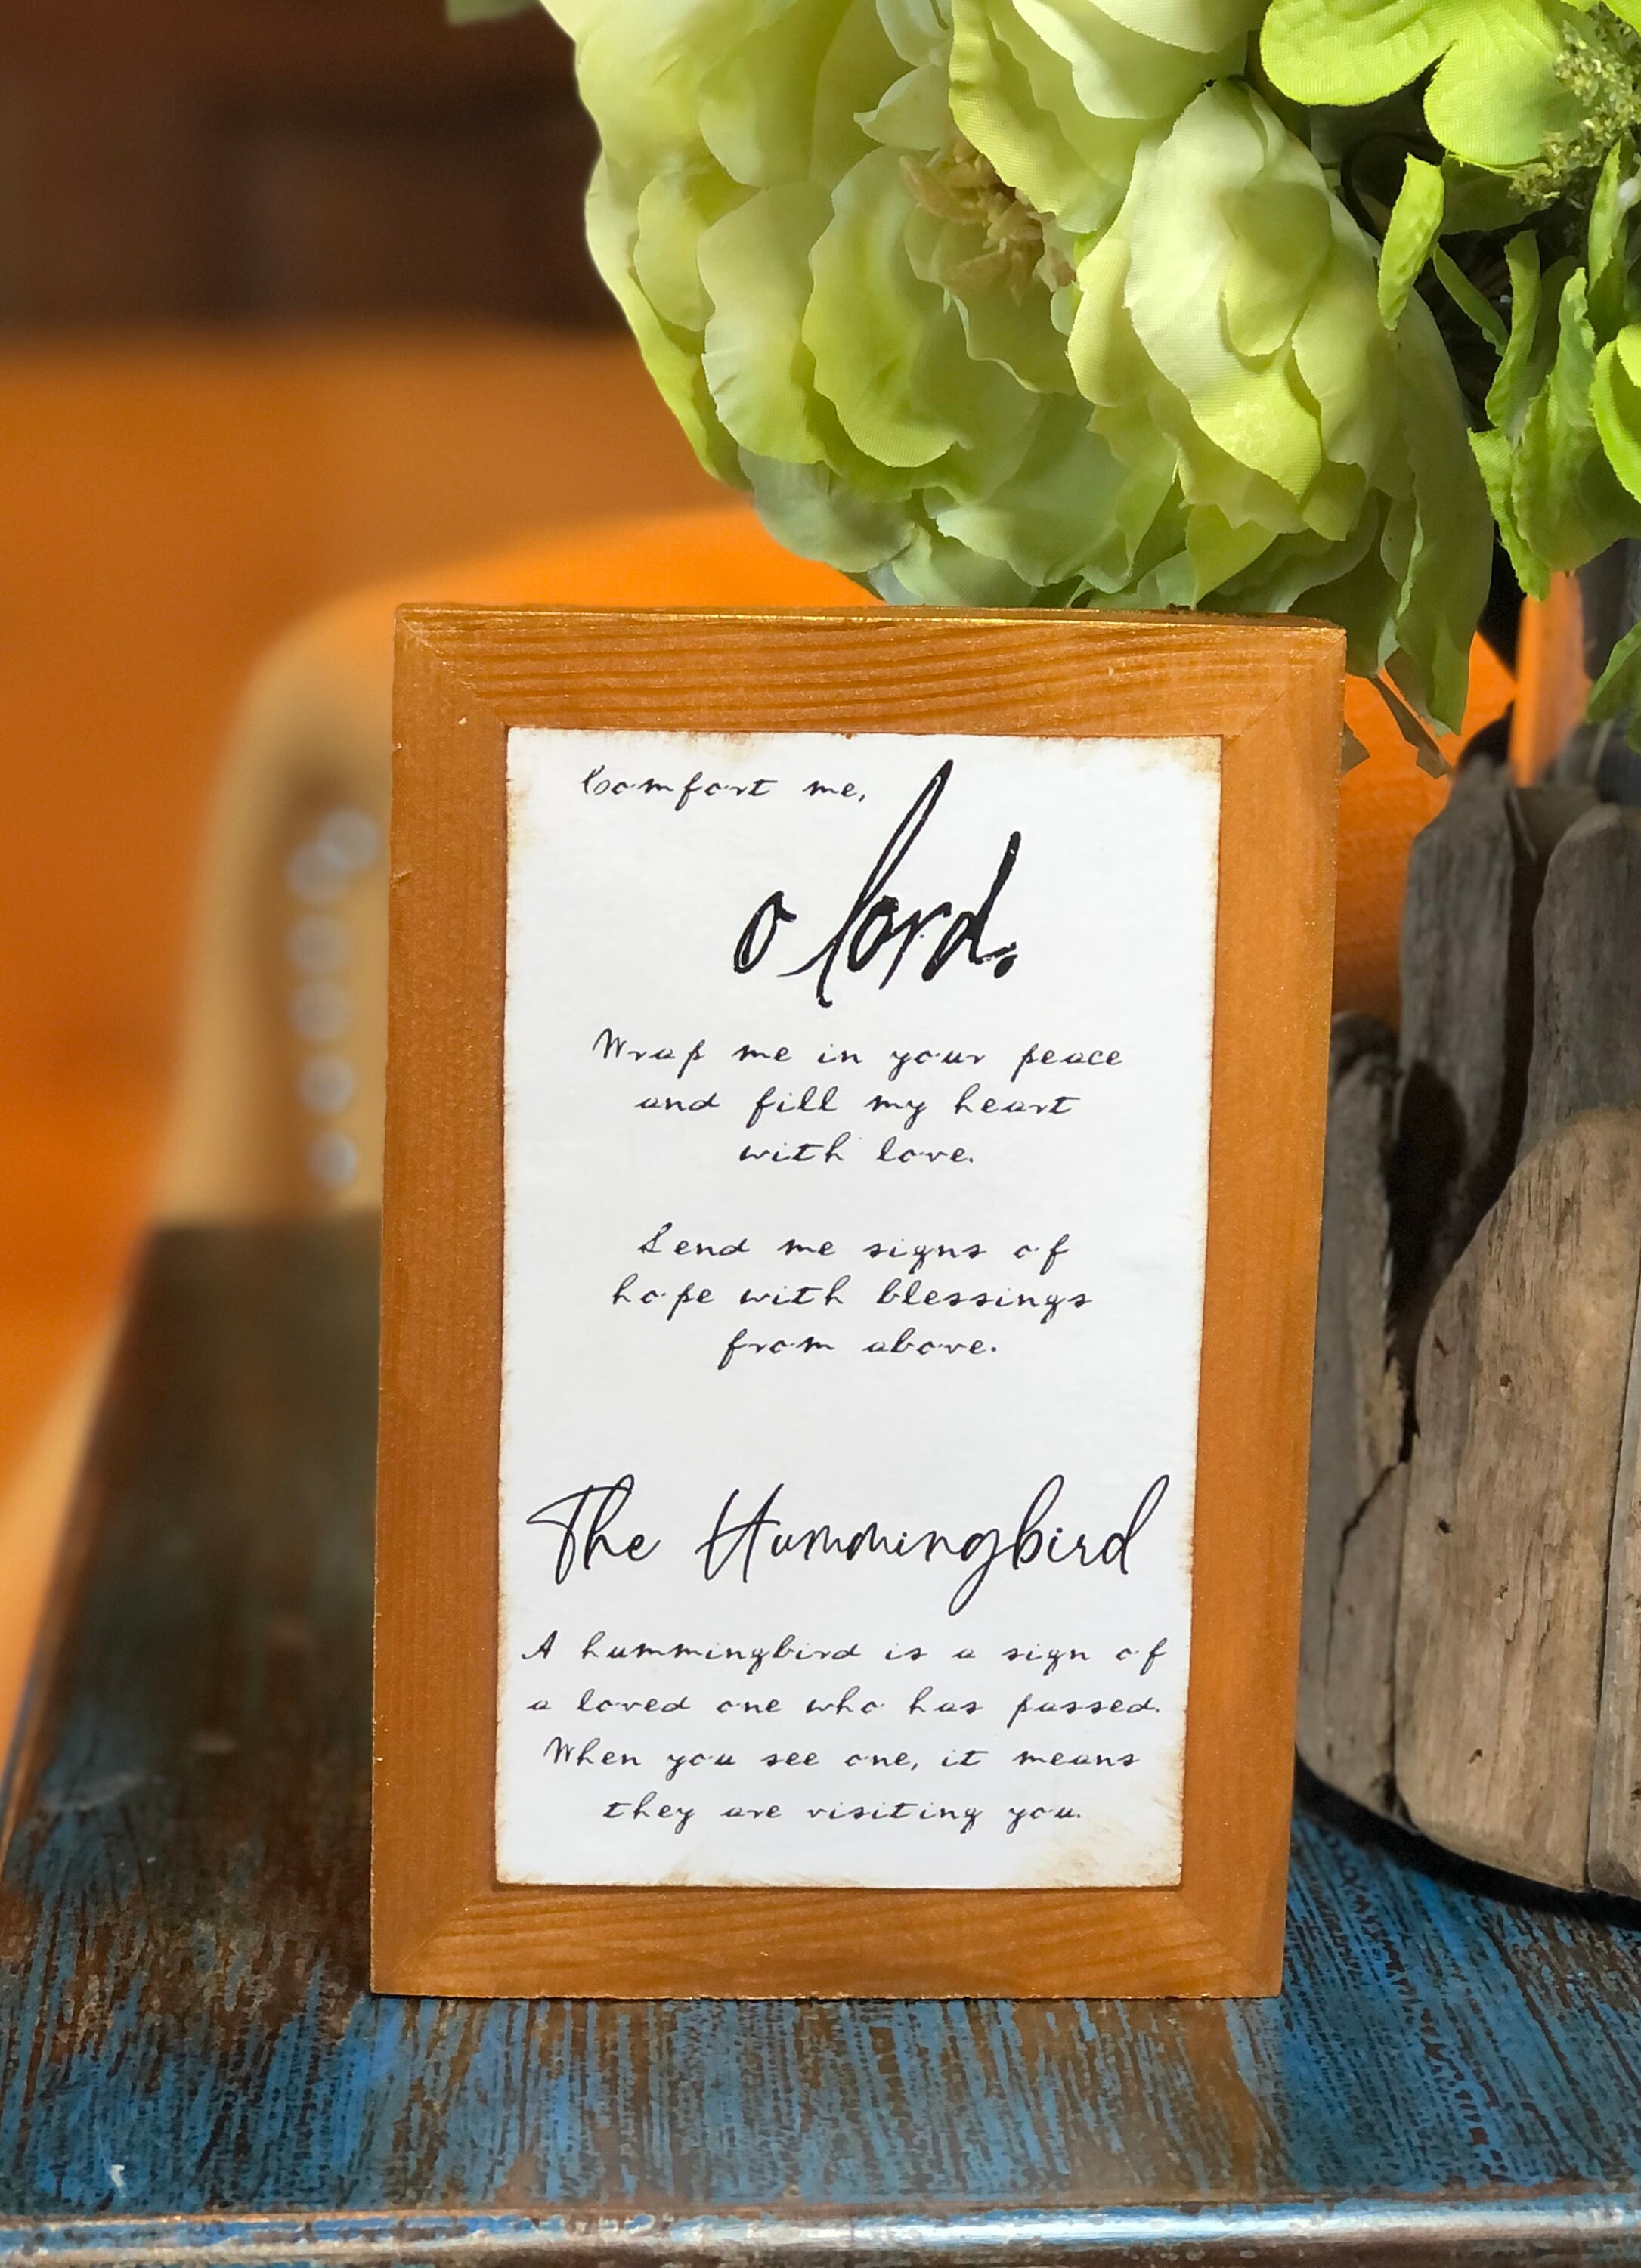 Comfort me,
o lord.
Wrap me in your peace
and fill my heart
with love.
Send me signs of
hope with blessings
from above.
The Hummingbird
A hummingbird is a sign of
a loved one who has passed.
When you see one, it means
they are visiting you.